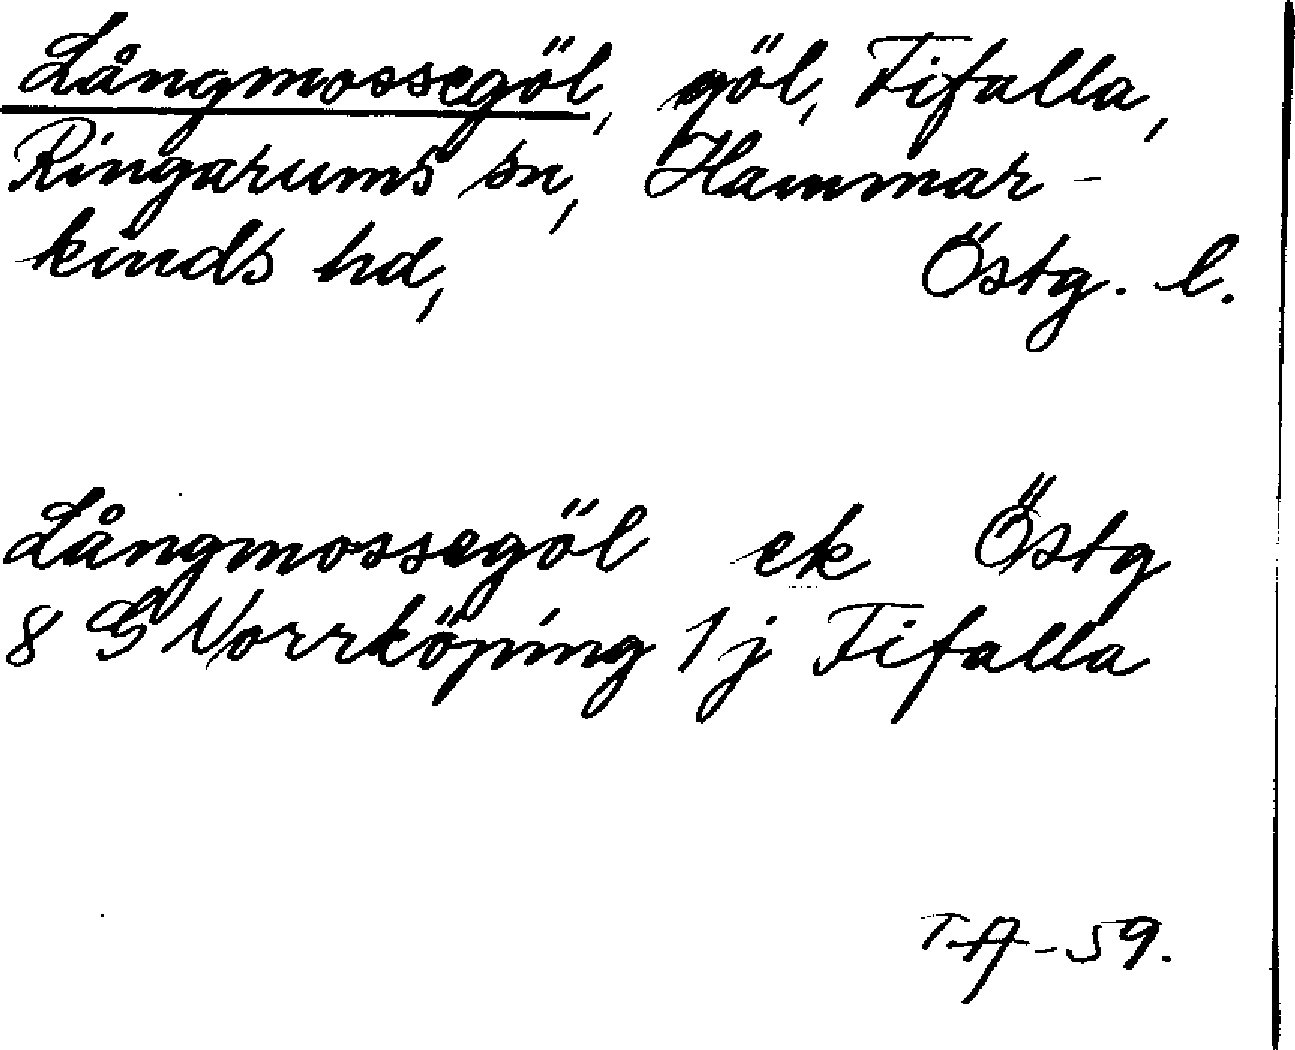 Långmossegöl, göl, Fifalla,
Ringarums sn, Hammar-
kinds hd, Östg. l.
Långmossegöl ek Östg
8 G Norrköping 1j Fifalla
TA-59.